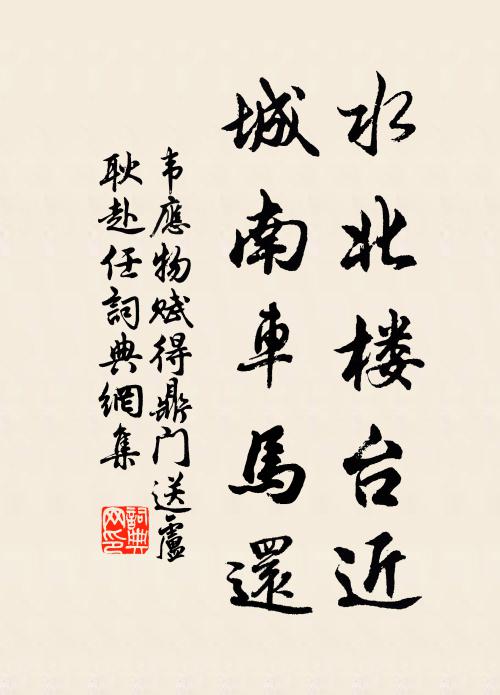 水北楼台近
城南車馬還
韦應物赋得鼎门送盧
耿赴任詞典網集
詞典
网印